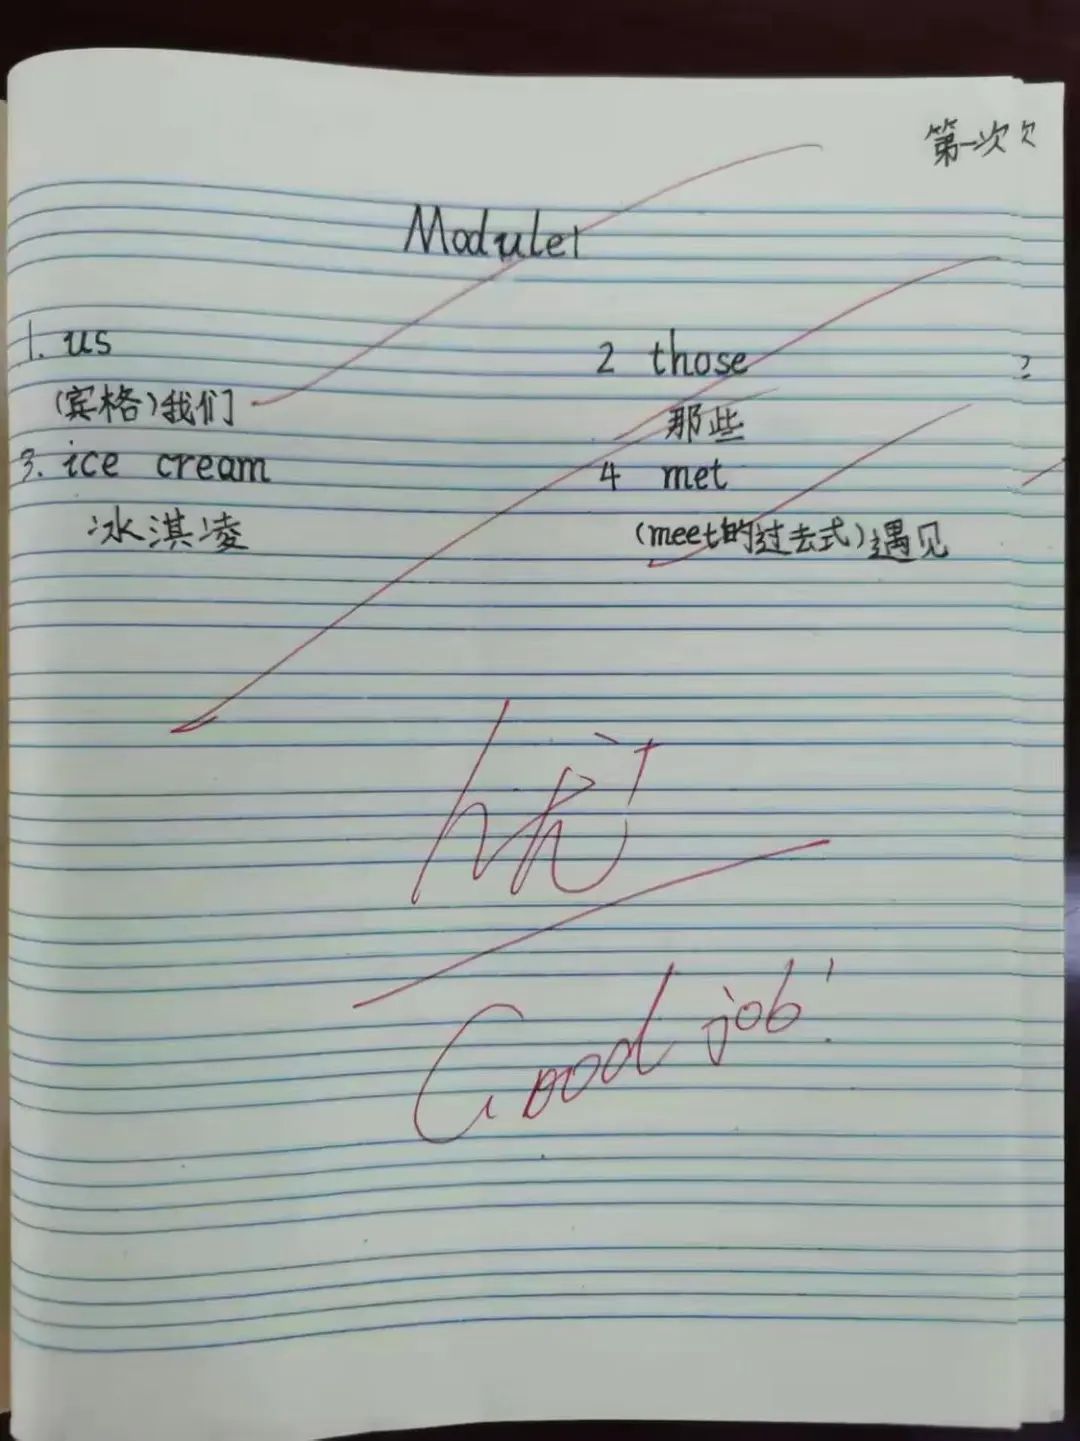 第一次
Module1
1. us
2 those
(宾格)我们
那些
3. ice cream
4 met
冰淇凌
(meet的过去式)遇见
优+
Good job!